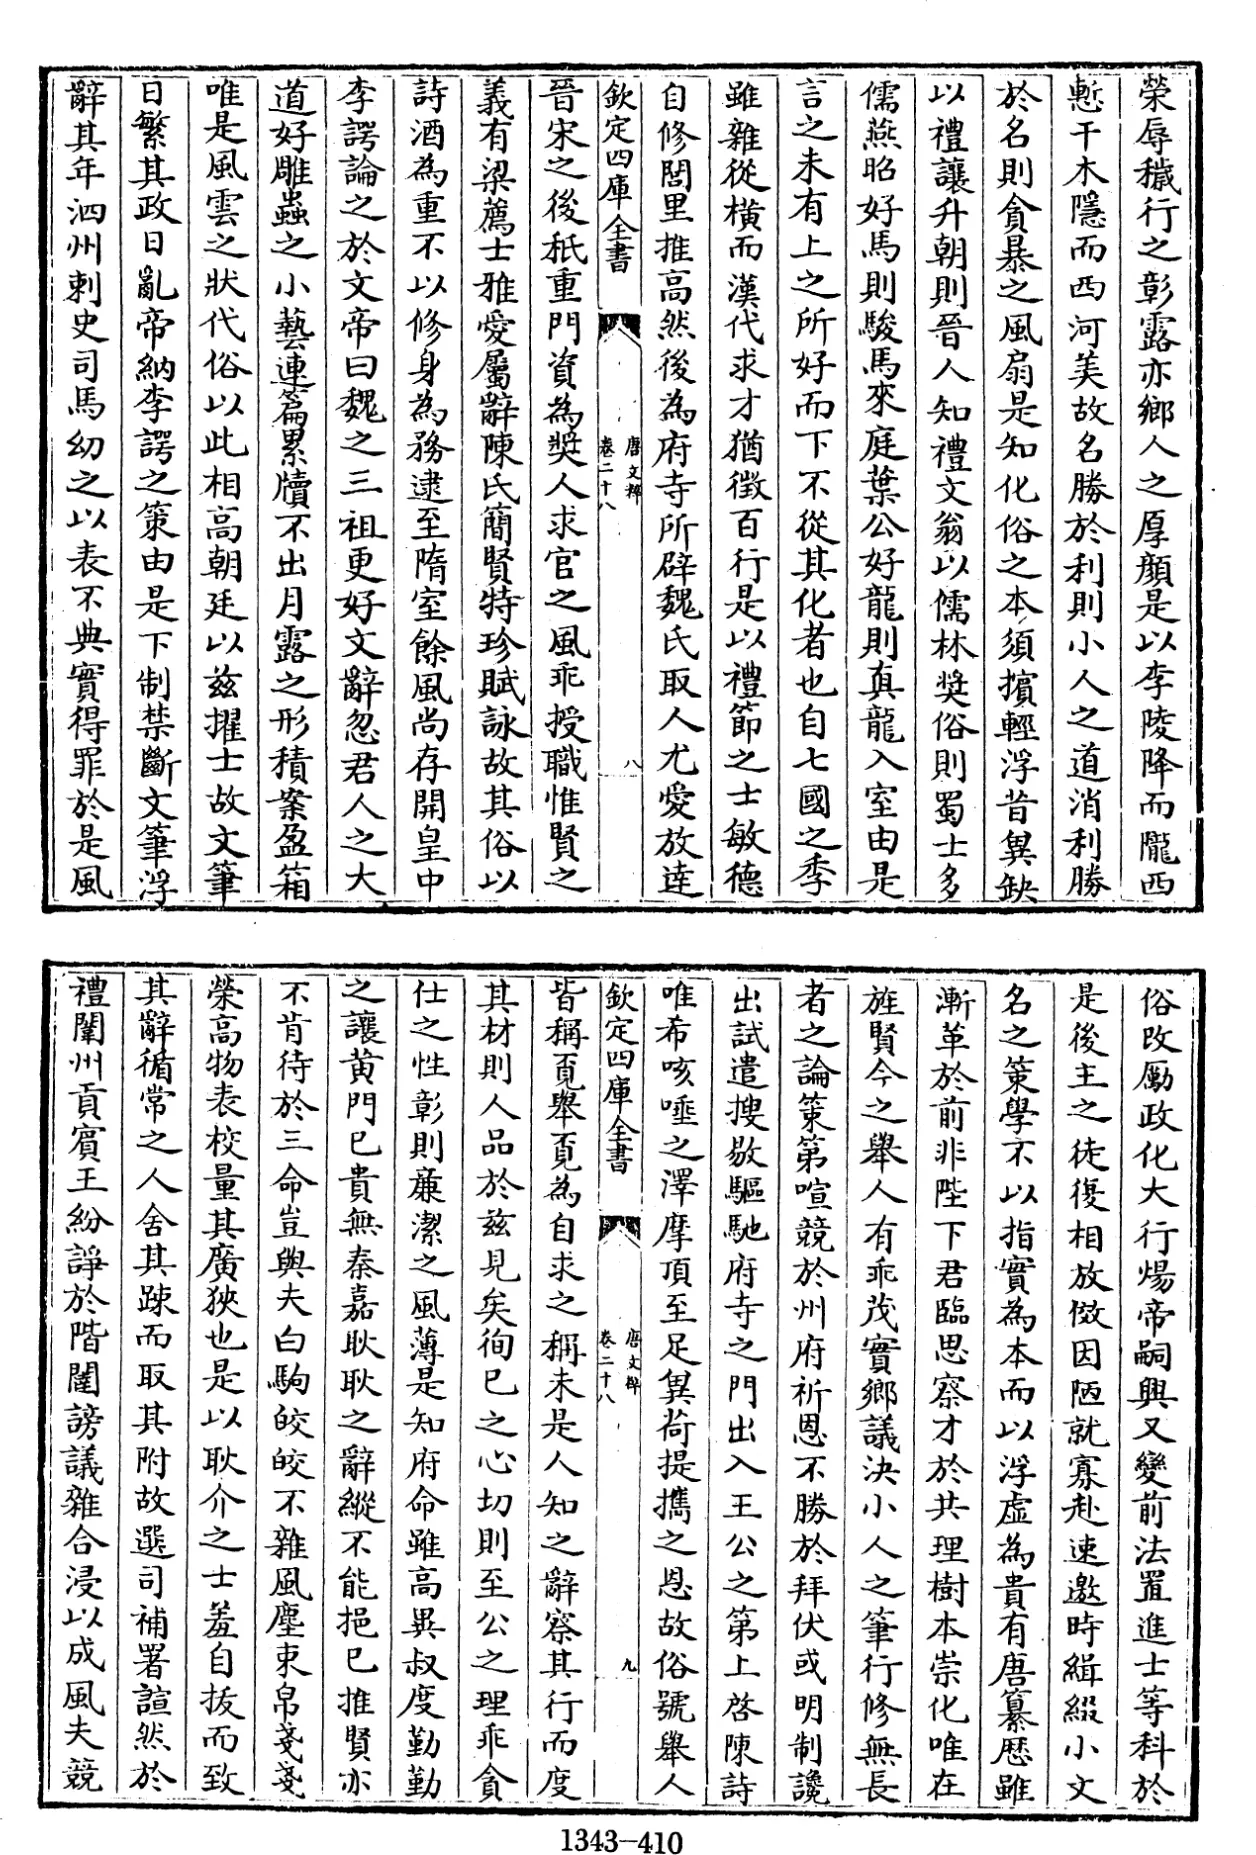 榮辱穢行之彰露亦鄉人之厚顔是以李陵降而隴西
慙干木隱而西河美故名勝於利則小人之道消利勝
於名則貪暴之風扇是知化俗之本須擯輕浮昔冀缺
以禮讓升朝則晉人知禮文翁以儒林奬俗則蜀士多
儒燕昭好馬則駿馬來庭葉公好龍則真龍入室由是
言之未有上之所好而下不從其化者也自七國之季
雖雜從橫而漢代求才猶徵百行是以禮節之士敏德
自修閭里推高然後為府寺所辟魏氏取人尤愛放達
欽定四庫全書 唐文粹 卷二十八 八
晉宋之後秖重門資為奬人求官之風乖授職惟賢之
義有梁薦士雅愛屬辭陳氏簡賢特珍賦詠故其俗以
詩酒為重不以修身為務逮至隋室餘風尚存開皇中
李諤論之於文帝曰魏之三祖更好文辭忽君人之大
道好雕蟲之小藝連篇累牘不出月露之形積案盈箱
唯是風雲之狀代俗以此相高朝廷以兹擢士故文筆
日繁其政日亂帝納李諤之策由是下制禁斷文筆浮
辭其年泗州刺史司馬幼之以表不典實得罪於是風
俗改勵政化大行煬帝嗣興又變前法置進士等科於
是後主之徒復相放傚因陋就寡赴速邀時緝綴小文
名之策學不以指實為本而以浮虚為貴有唐纂歷雖
漸革於前非陛下君臨思察才於共理樹本崇化唯在
旌賢今之舉人有乖茂實鄉議決小人之筆行修無長
者之論策第喧競於州府祈恩不勝於拜伏或明制讒
出試遣搜敭驅馳府寺之門出入王公之第上啓陳詩
唯希咳唾之澤摩頂至足冀荷提攜之恩故俗號舉人
欽定四庫全書 唐文粹 卷二十八 九
皆稱覓舉覓為自求之稱未是人知之辭察其行而度
其材則人品於兹見矣徇已之心切則至公之理乖貪
仕之性彰則廉潔之風薄是知府命雖高異叔度勤勤
之讓黄門已貴無秦嘉耿耿之辭縱不能挹已推賢亦
不肯待於三命豈與夫白駒皎皎不雜風塵束帛戔戔
榮高物表校量其廣狹也是以耿介之士羞自拔而致
其辭循常之人舍其疎而取其附故選司補署諠然於
禮闈州貢賓王紛諍於階闥謗議雜合浸以成風夫競
1343-410